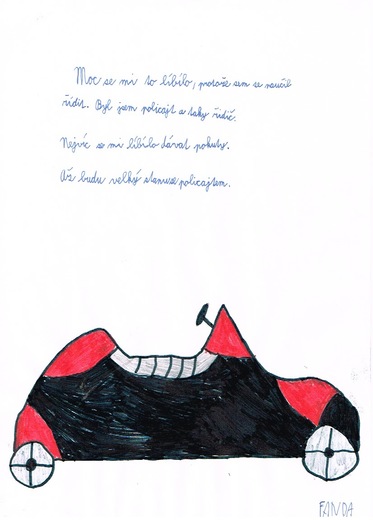 Moc se mi to líbilo, protože sem se naučil
řídit. Byl jsem policajt a taky řidič.
Nejvíc se mi líbilo dávat pokuty.
Až budu velký stanuse policajtem.
FANDA